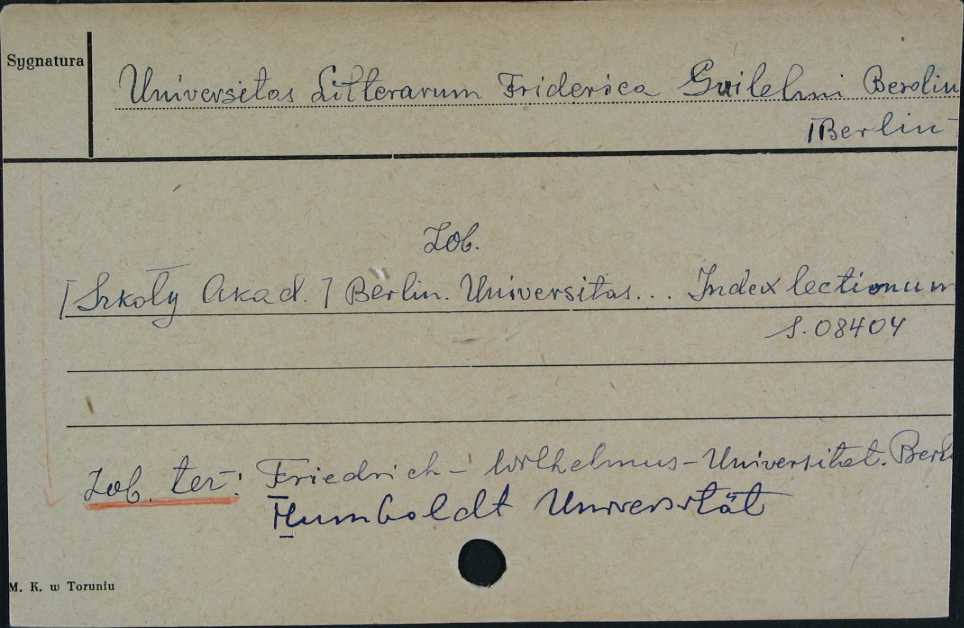 Sygnatura
Universitas Litterarum Friderica Guilelmi Berolin
[Berlin]
Zob.
[Szkoły Akad.] Berlin. Universitas... Index lectionum
S. 08404
Zob. też: Friedrich-Wilhelmus-Universitet. Berl
Humboldt Universität
M. K. w Toruniu